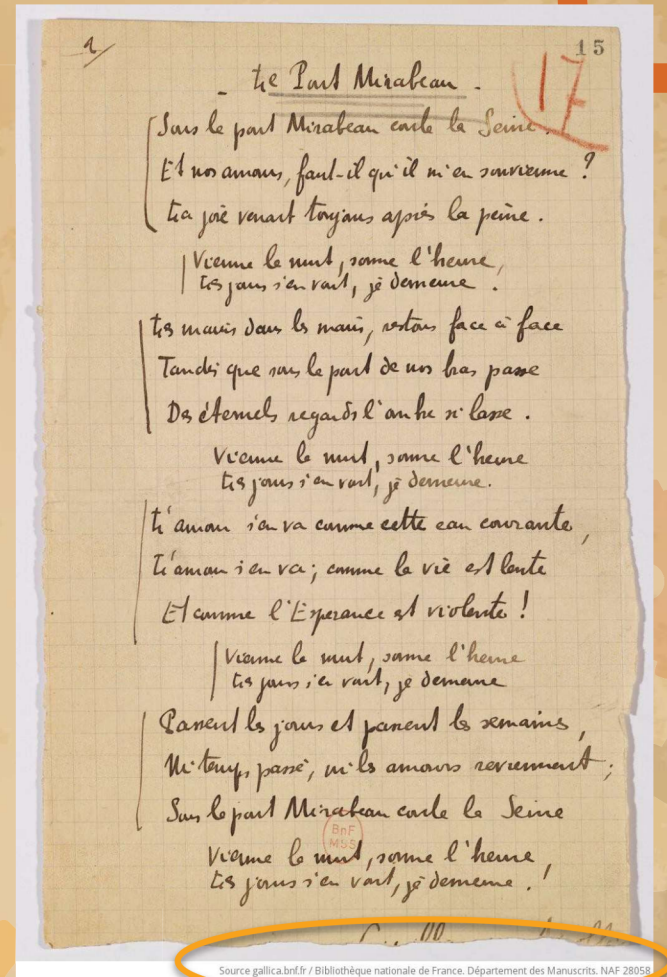 1/
15
17
Le Pont Mirabeau.
Sous le pont Mirabeau coule la Seine.
Et nos amours, faut-il qu'il m'en souvienne ?
La joie venait toujours après la peine.
Vienne la nuit, sonne l'heure,
Les jours s'en vont, je demeure.
Les mains dans les mains, restons face à face
Tandis que sous le pont de nos bras passe
Des éternels regards l'onde si lasse.
Vienne la nuit, sonne l'heure
Les jours s'en vont, je demeure.
L'amour s'en va comme cette eau courante,
L'amour s'en va ; comme la vie est lente
Et comme l'Espérance est violente !
Vienne la nuit, sonne l'heure
Les jours s'en vont, je demeure
Passent les jours et passent les semaines,
Ni temps passé, ni les amours reviennent ;
Sous le pont Mirabeau coule la Seine
BnF
MSS
Vienne la nuit, sonne l'heure,
Les jours s'en vont, je demeure.!
Source gallica.bnf.fr / Bibliothèque nationale de France. Département des Manuscrits. NAF 28058